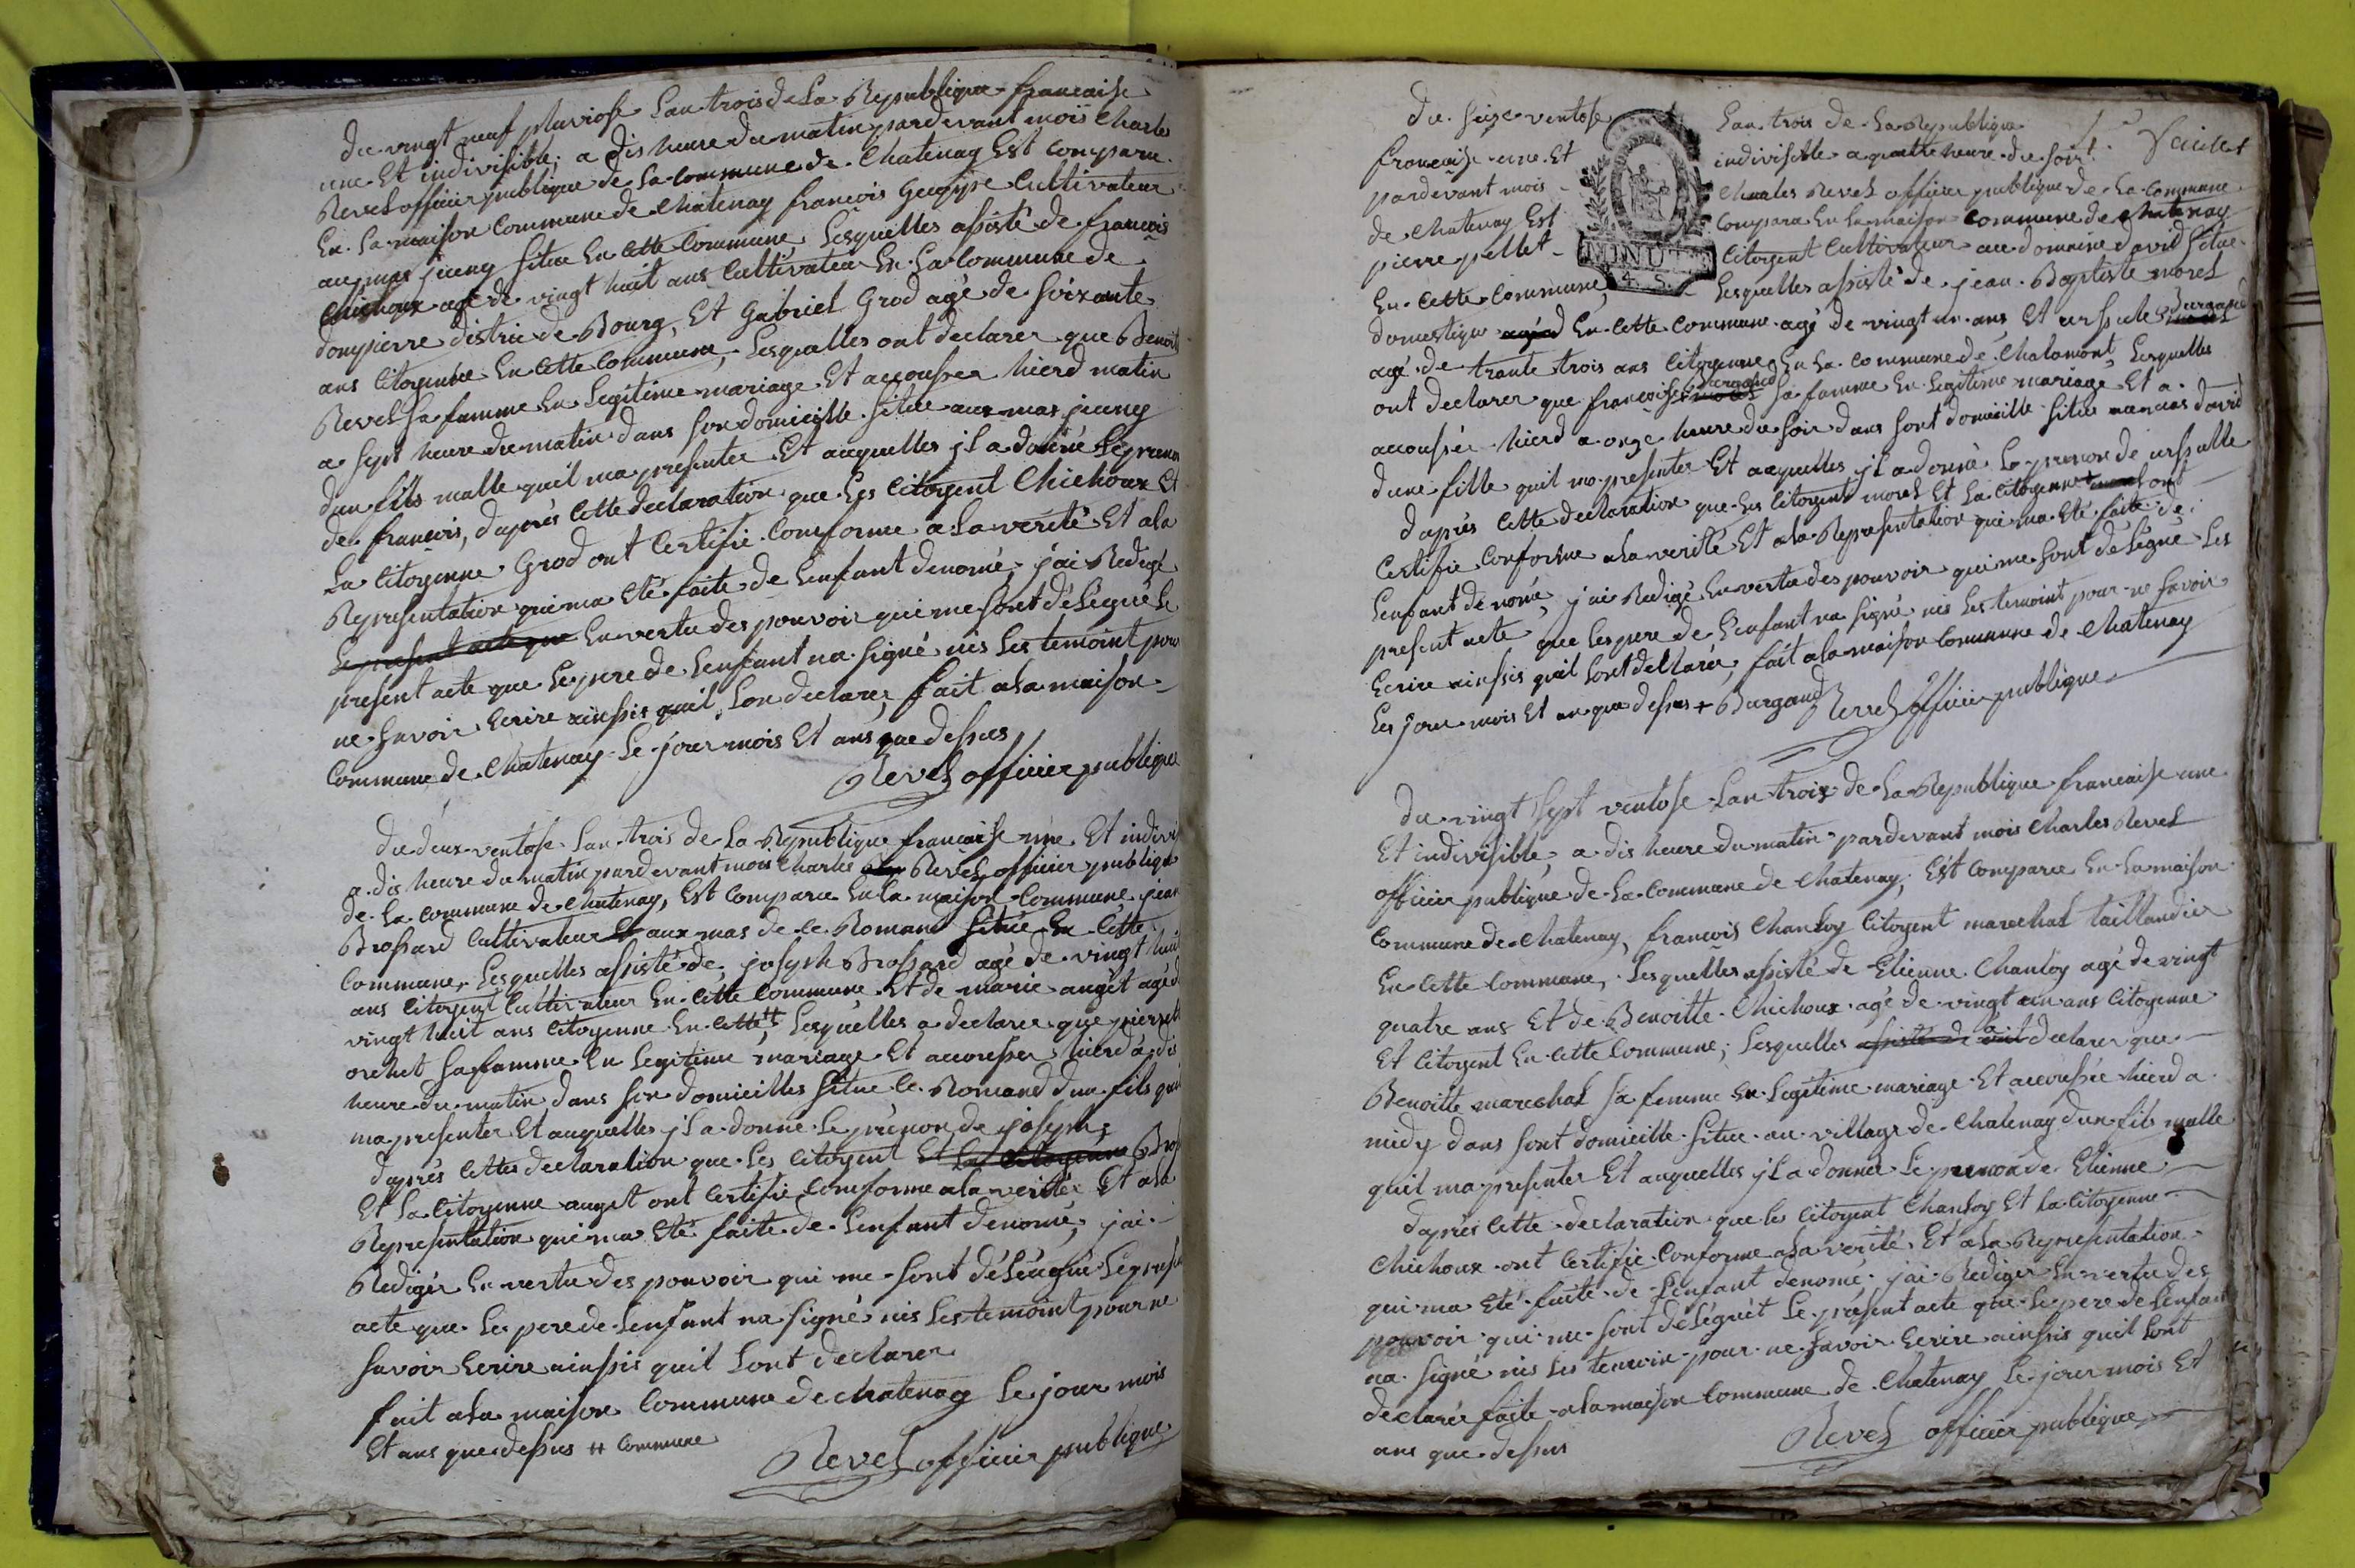 Du vingt neuf pluviose Lan trois de La Republique francaise
une Et indivisible, a dis heure du matin pardevant mois Charles
Revel officier publique de La Commune de Chatenay Est comparu
En La maison Commune de Chatenay francois Cultivateur
au mas jueny situe En Cette Commune Lesquelles assisté de francois
Chichoux agé de vingt huit ans Cultivateur En La Commune de
dompierre distric de Bourg, Et Gabriel Grod agé de soixante
ans Citoyenne En Cette Commune, Lesqualles ont declarer que Benoit
Revel sa famme En Legitime mariage Et accousher hierd matin
a sept heure du matin dans son domicille situe aux mas jueny
dun fils malle quil ma presenter Et auquelles jl a donné Le prenom
de francois, daprés Cette declaration que Les Citoyent Chichoux Et
La Citoyenne Grod ont Certifié Conforme a La verité Et ala
Representation qui ma Eté faite de Lenfant denomé, j'ai Redigé
Le present acte que En vertu des pouvoir qui me sont déLégué Le
present acte que Le pere de Lenfant na signé nis Les temoint pour
ne savoir Ecrire ainssis quil Lon declarer, fait ala maison
Commune de Chatenay Le jour mois Et ans que dessus
Revel officier publique
Du deux ventose Lan trois de La Republique francaise une Et indivi
a dis heure du matin pardevant mois Charles Revel officier publique
de La Commune de Chatenay, Est Comparu En La maison Commune jean
Brossard Cultivateur aux mas de Le Romand situé En Cette
Commune, Lesquelles assisté de joseph Brossard agé de vingt huit
ans Citoyent Cultivateur En Cette Commune Et de marie auget agé d
vingt huit ans Citoyenne En Cette ++, Lesquelles a declarer que pierrette
orchet sa famme En Legitime mariage Et accousher hierd a dis
heure du matin dans son domicilles situe Le Romand dun fils quil
ma presenter Et auquelles jl a donne Le prénon de joseph,
daprés Cette declaration que Les Citoyent Et La Citoyenne Bros
Et La Citoyenne auget ont Certifié Conforme ala verité Et ala
Representation qui ma Eté faite de Lenfant denomé, j'ai
Rediger En vertu des pouvoir qui me sont déLéugué Le presen
acte que Le pere de Lenfant na signé nis Les temoint pour ne
savoir Ecrire ainssis quil Lont declarer
fait ala maison Commune de Chatenay Le jour mois
Et ans que dessus ++ Commune
Revel officier publique
Du seize ventose Lan trois de La Republique
francaise une Et indivisible a quatre heure du soir
pardevant mois Charles Revel officier publique de La Commune
de Chatenay Est Comparu En La maison Commune de Chatenay
pierre pellet Citoyent Cultivateur au domaine david situe
MINUTE
4. S.
En Cette Commune, Lesquelles assisté de jean Baptiste morel
domestique En Cette Commune agé de vingt un ans Et ursule Burgand
agé de trante trois ans Citoyenne En La Commune de Chalamont, Lesquelles
ont declarer que francoise Burgand sa famme En Legitime mariage Et a
accoussée hierd a onze heure du soir dans sont domicille situe au mas david
dune fille quil ma presenter Et auquelles jl a donné Le prenon de ursulle
daprés Cette declaration que Les Citoyent morel Et La Citoyenne + ont
Certifié Conforme ala verité Et ala Representation qui ma Eté faite de
Lenfant denomé, j'ai Redigé En vertu des pouvoir qui me sont déLégué Les
present acte que Les pere de Lenfant na signé nis Les temoint pour ne savoir
Ecrire ainssis quil Lont dellarée, fait ala maison Commune de Chatenay
Les jour mois Et an que dessus + Burgand Revel officier publique
Du vingt sept ventose Lan trois de La Republique francaise une
Et indivisible, a dis heure du matin pardevant mois Charles Revel
officier publique de La Commune de Chatenay, Est Comparu En La maison
Commune de Chatenay, francois Chanloy Citoyent marechal taillandier
En Cette Commune, Lesquelles assisté de Etienne Chanloy agé de vingt
quatre ans Et de Benoitte Chichoux agé de vingt un ans Citoyenne
Et Citoyent En Cette Commune, Lesquelles assisté de a declarer que
Benoitte marechal sa femme En Legitime mariage Et accoussée hierd a
midy dans sont domicille situe au village de Chatenay dun fils malle
quil ma presenter Et auquelles jl a donner Le prenon de Etienne
daprés Cette declaration que Les Citoyent Chanloy Et La Citoyenne
Chichoux ont Certifié Conforme ala verité Et ala Representation
qui ma Eté faite de Lenfant denomé j'ai Rediger En vertu des
pouvoir qui me sont déLéguét Le present acte que Le pere de Lenfant
na signé nis Les temoin pour ne savoir Ecrire ainssis quil Lont
declarér faite ala maison Commune de Chatenay Le jour mois Et
ans que dessus
Revel officier publique